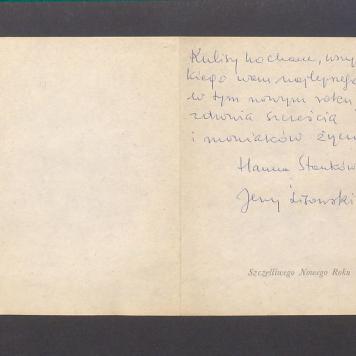 Kulisy kochane, wszy
kiego wam najlepszego
w tym nowym roku
zdrowia szczęścia
i moniaków życz
Hanna Stanków
i
Jerzy Lisowski
Szczęśliwego Nowego Roku